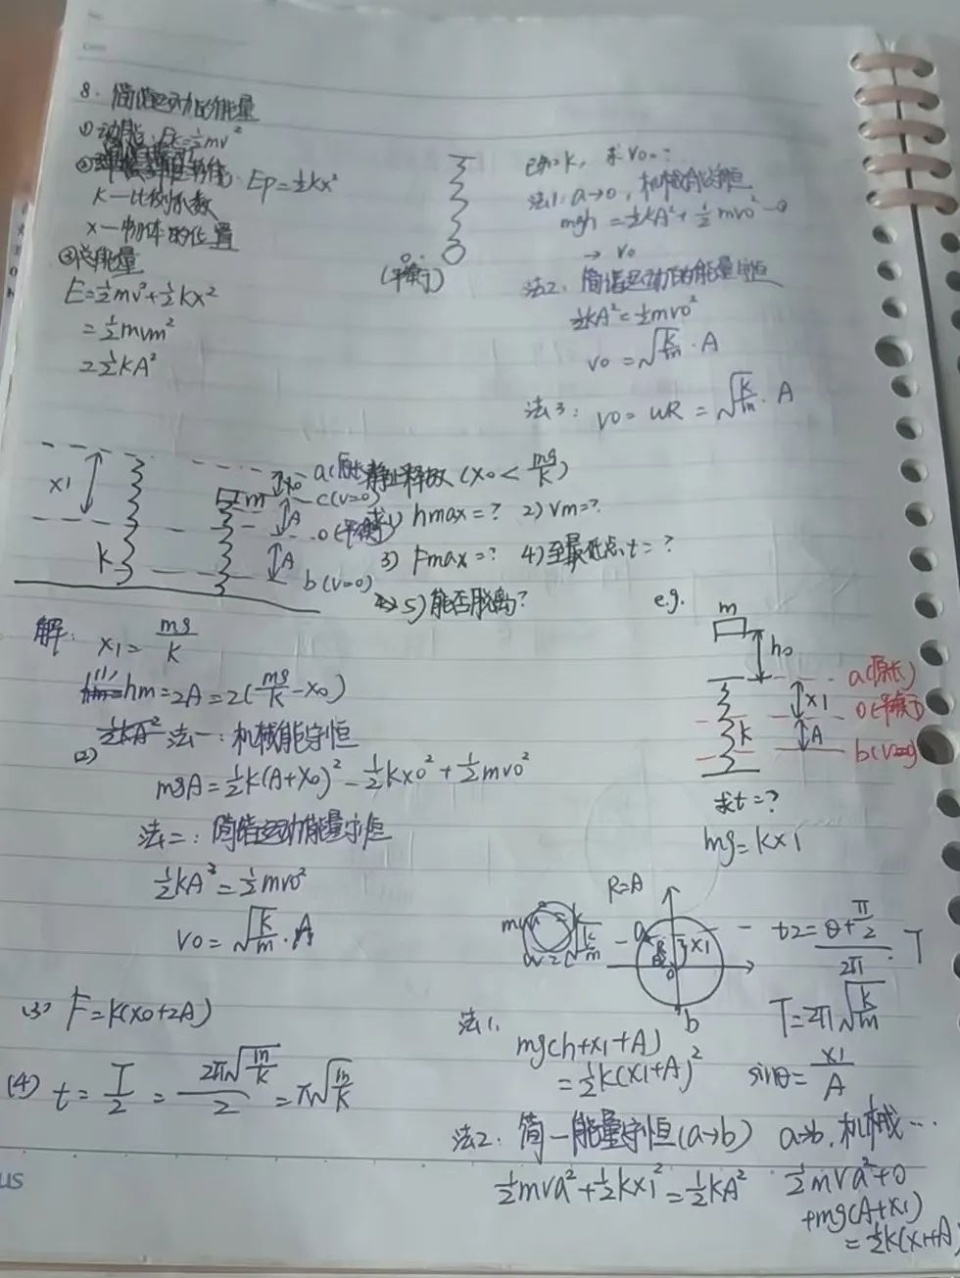 8. 简谐运动的能量
①动能: Ek=½mv²
Ep=½kx²
K—比例系数
x—物体的位置
③总能量
E=½mv²+½kx²
=½mvm²
=½kA²
O
(平衡)
已知k, 求v0=?
法1: a→0, 机械能守恒
mgh=½kA²+½mv0²-0
→ v0
法2. 简谐运动的能量守恒
½kA²=½mv0²
v0=√(k/m)·A
法3: v0=ωR=√(k/m)·A
x1
k
m
x0
A
A
a(原长 静止释放 (x0<mg/k)
c(v=0)
o(平衡)
b(v=0)
1) hmax=? 2) vm=?
3) Fmax=? 4)至最低点t=?
5)能否脱离?
解: x1=mg/k
(1) hm=2A=2(mg/k-x0)
(2) 法一: 机械能守恒
mgA=½k(A+x0)²-½kx0²+½mv0²
法二: 简谐运动能量守恒
½kA²=½mv0²
v0=√(k/m)·A
(3) F=k(x0+2A)
(4) t=T/2=2π√(m/k)/2=π√(m/k)
e.g.
m
h0
a(原长)
x1
o(平衡)
k
A
b(v=0)
求t=?
mg=kx1
R=A
a
x1
o
b
t2=(θ+π/2)/2π·T
T=2π√(k/m)
sinθ=x1/A
法1.
mg(h+x1+A)
=½k(x1+A)²
法2: 简—能量守恒(a→b)
½mva²+½kx1²=½kA²
a→b, 机械…
½mva²+0
+mg(A+x1)
=½k(x1+A)
us